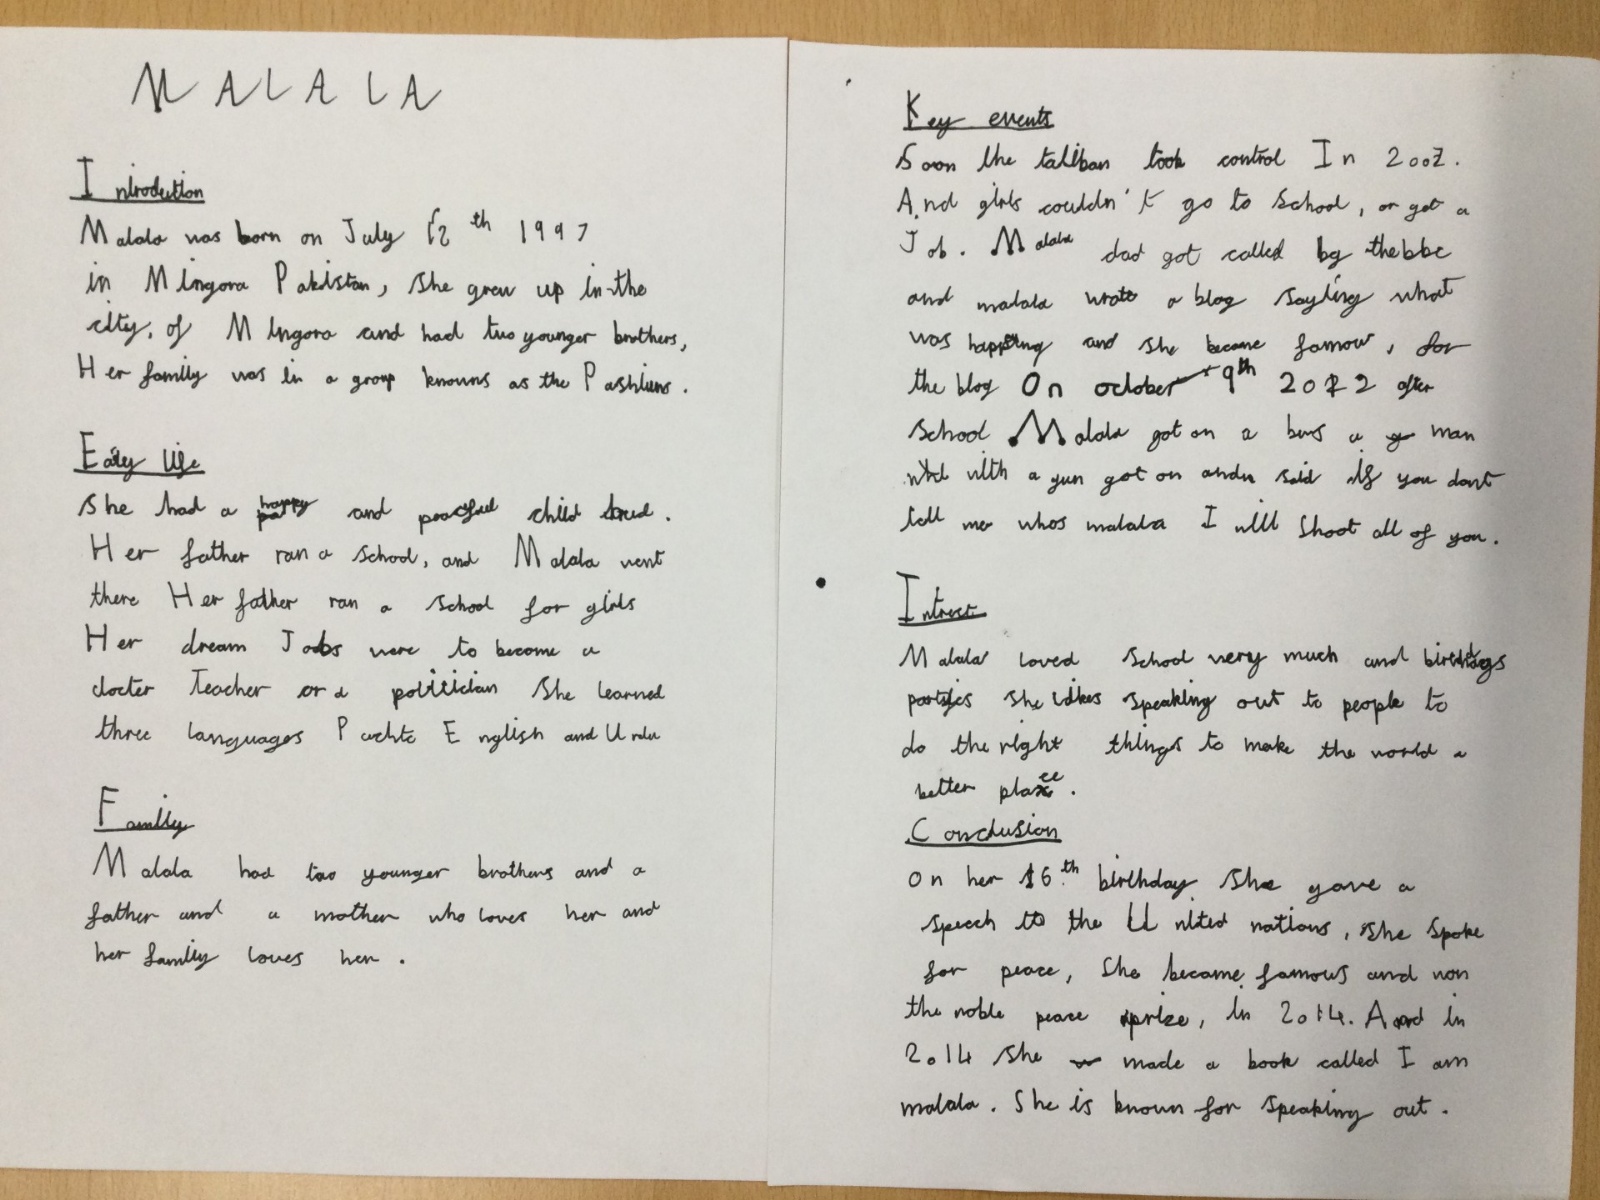 MALALA
Introduction
Malala was born on July 12th 1997
in Mingora Pakistan, She grew up in the
city. of Mingora and had two younger brothers,
Her family was in a group knowns as the Pashtuns.
Early life
She had a happy and peacful child
Her father ran a School, and Malala went
there Her father ran a School for girls
Her dream Jobs were to become a
docter Teacher or a politician She learned
three languages English and Urdu
Family
Malala had two younger brothers and a
father and a mother who loves her and
her family loves her.
Key events
Soon the taliban took control In 2007.
And girls couldn't go to School, or get a
Job. Malala dad got called by the bbc
and malala wrote a blog Saying what
was happning and she became famous, for
the blog On october 9th 2012 after
School Malala got on a bus a man
with a gun got on and Said if you dont
tell me whos malala I will Shoot all of you.
Intrest
Malala loved School very much and
parties She likes Speaking out to people to
do the right things to make the world a
better place.
Conclusion
On her 16th birthday She gave a
Speech to the United nations, She Spoke
for peace, She became famous and won
the noble peace prize, in 2014. And in
2014 She made a book called I am
malala. She is known for Speaking out.